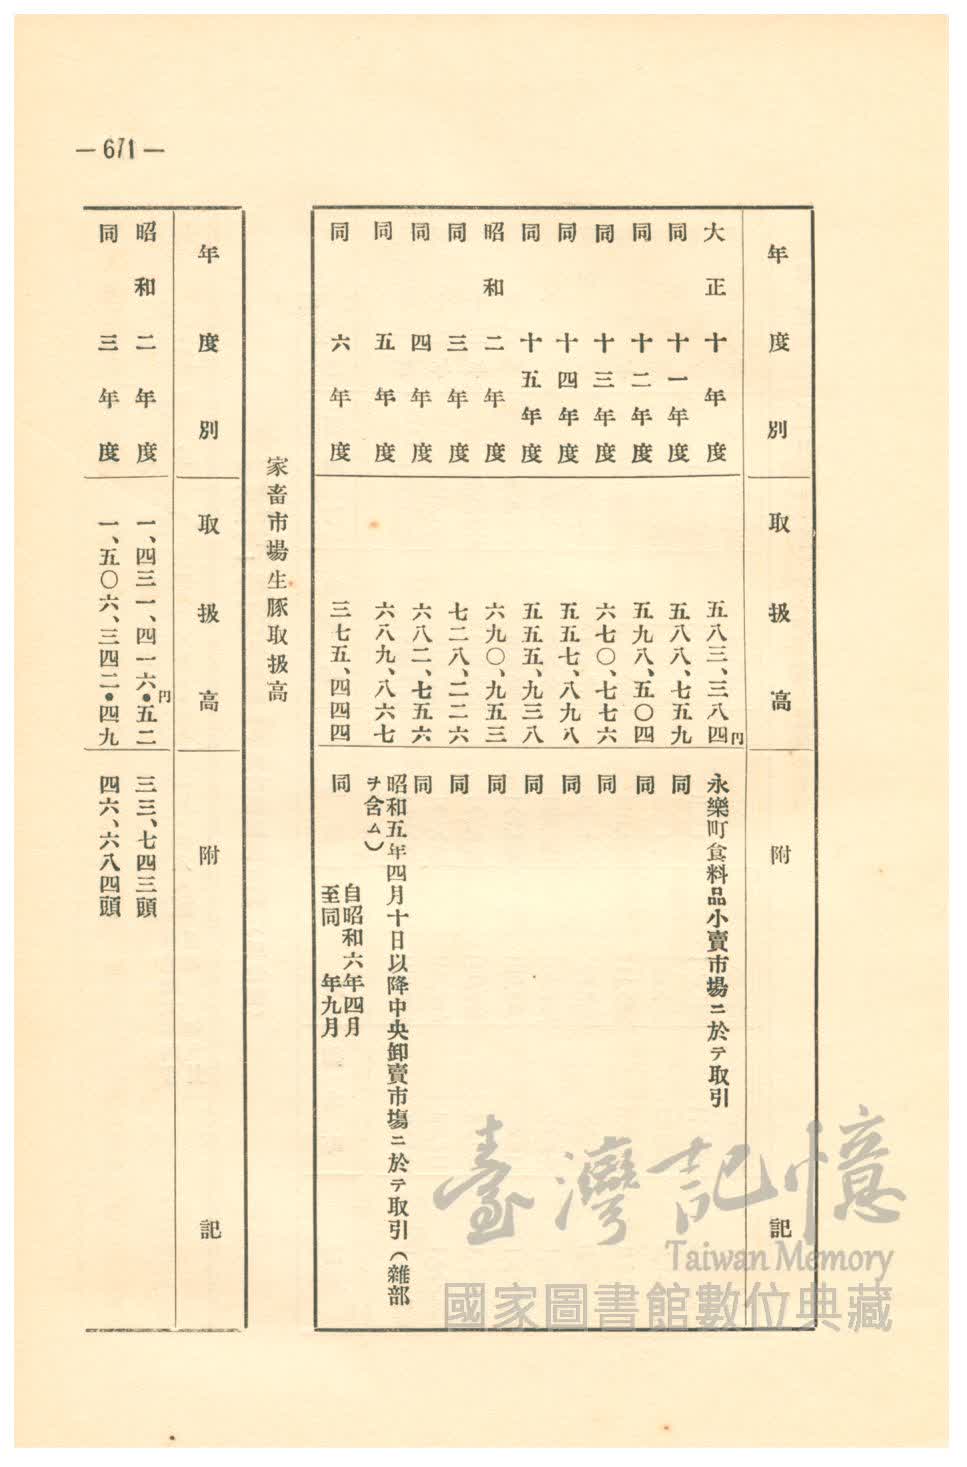 —671—
年度別 取扱高 附記
大正十年度 五八三、三八四円 永樂町食料品小賣市場ニ於テ取引
同十一年度 五八八、七五九 同
同十二年度 五九八、五〇四 同
同十三年度 六七〇、七七六 同
同十四年度 五五七、八九八 同
同十五年度 五五五、九三八 同
昭和二年度 六九〇、九五三 同
同三年度 七二八、二二六 同
同四年度 六八二、七五六 同
同五年度 六八九、八六七 昭和五年四月十日以降中央卸賣市塲ニ於テ取引(雜部
ヲ含ム)
同六年度 三七五、四四四 同 自昭和六年四月
至同 年九月
家畜市場生豚取扱高
年度別 取扱高 附記
昭和二年度 一、四三一、四一六・五二円 三三、七四三頭
同三年度 一、五〇六、三四二・四九 四六、六八四頭
臺灣記憶
Taiwan Memory
國家圖書館數位典藏